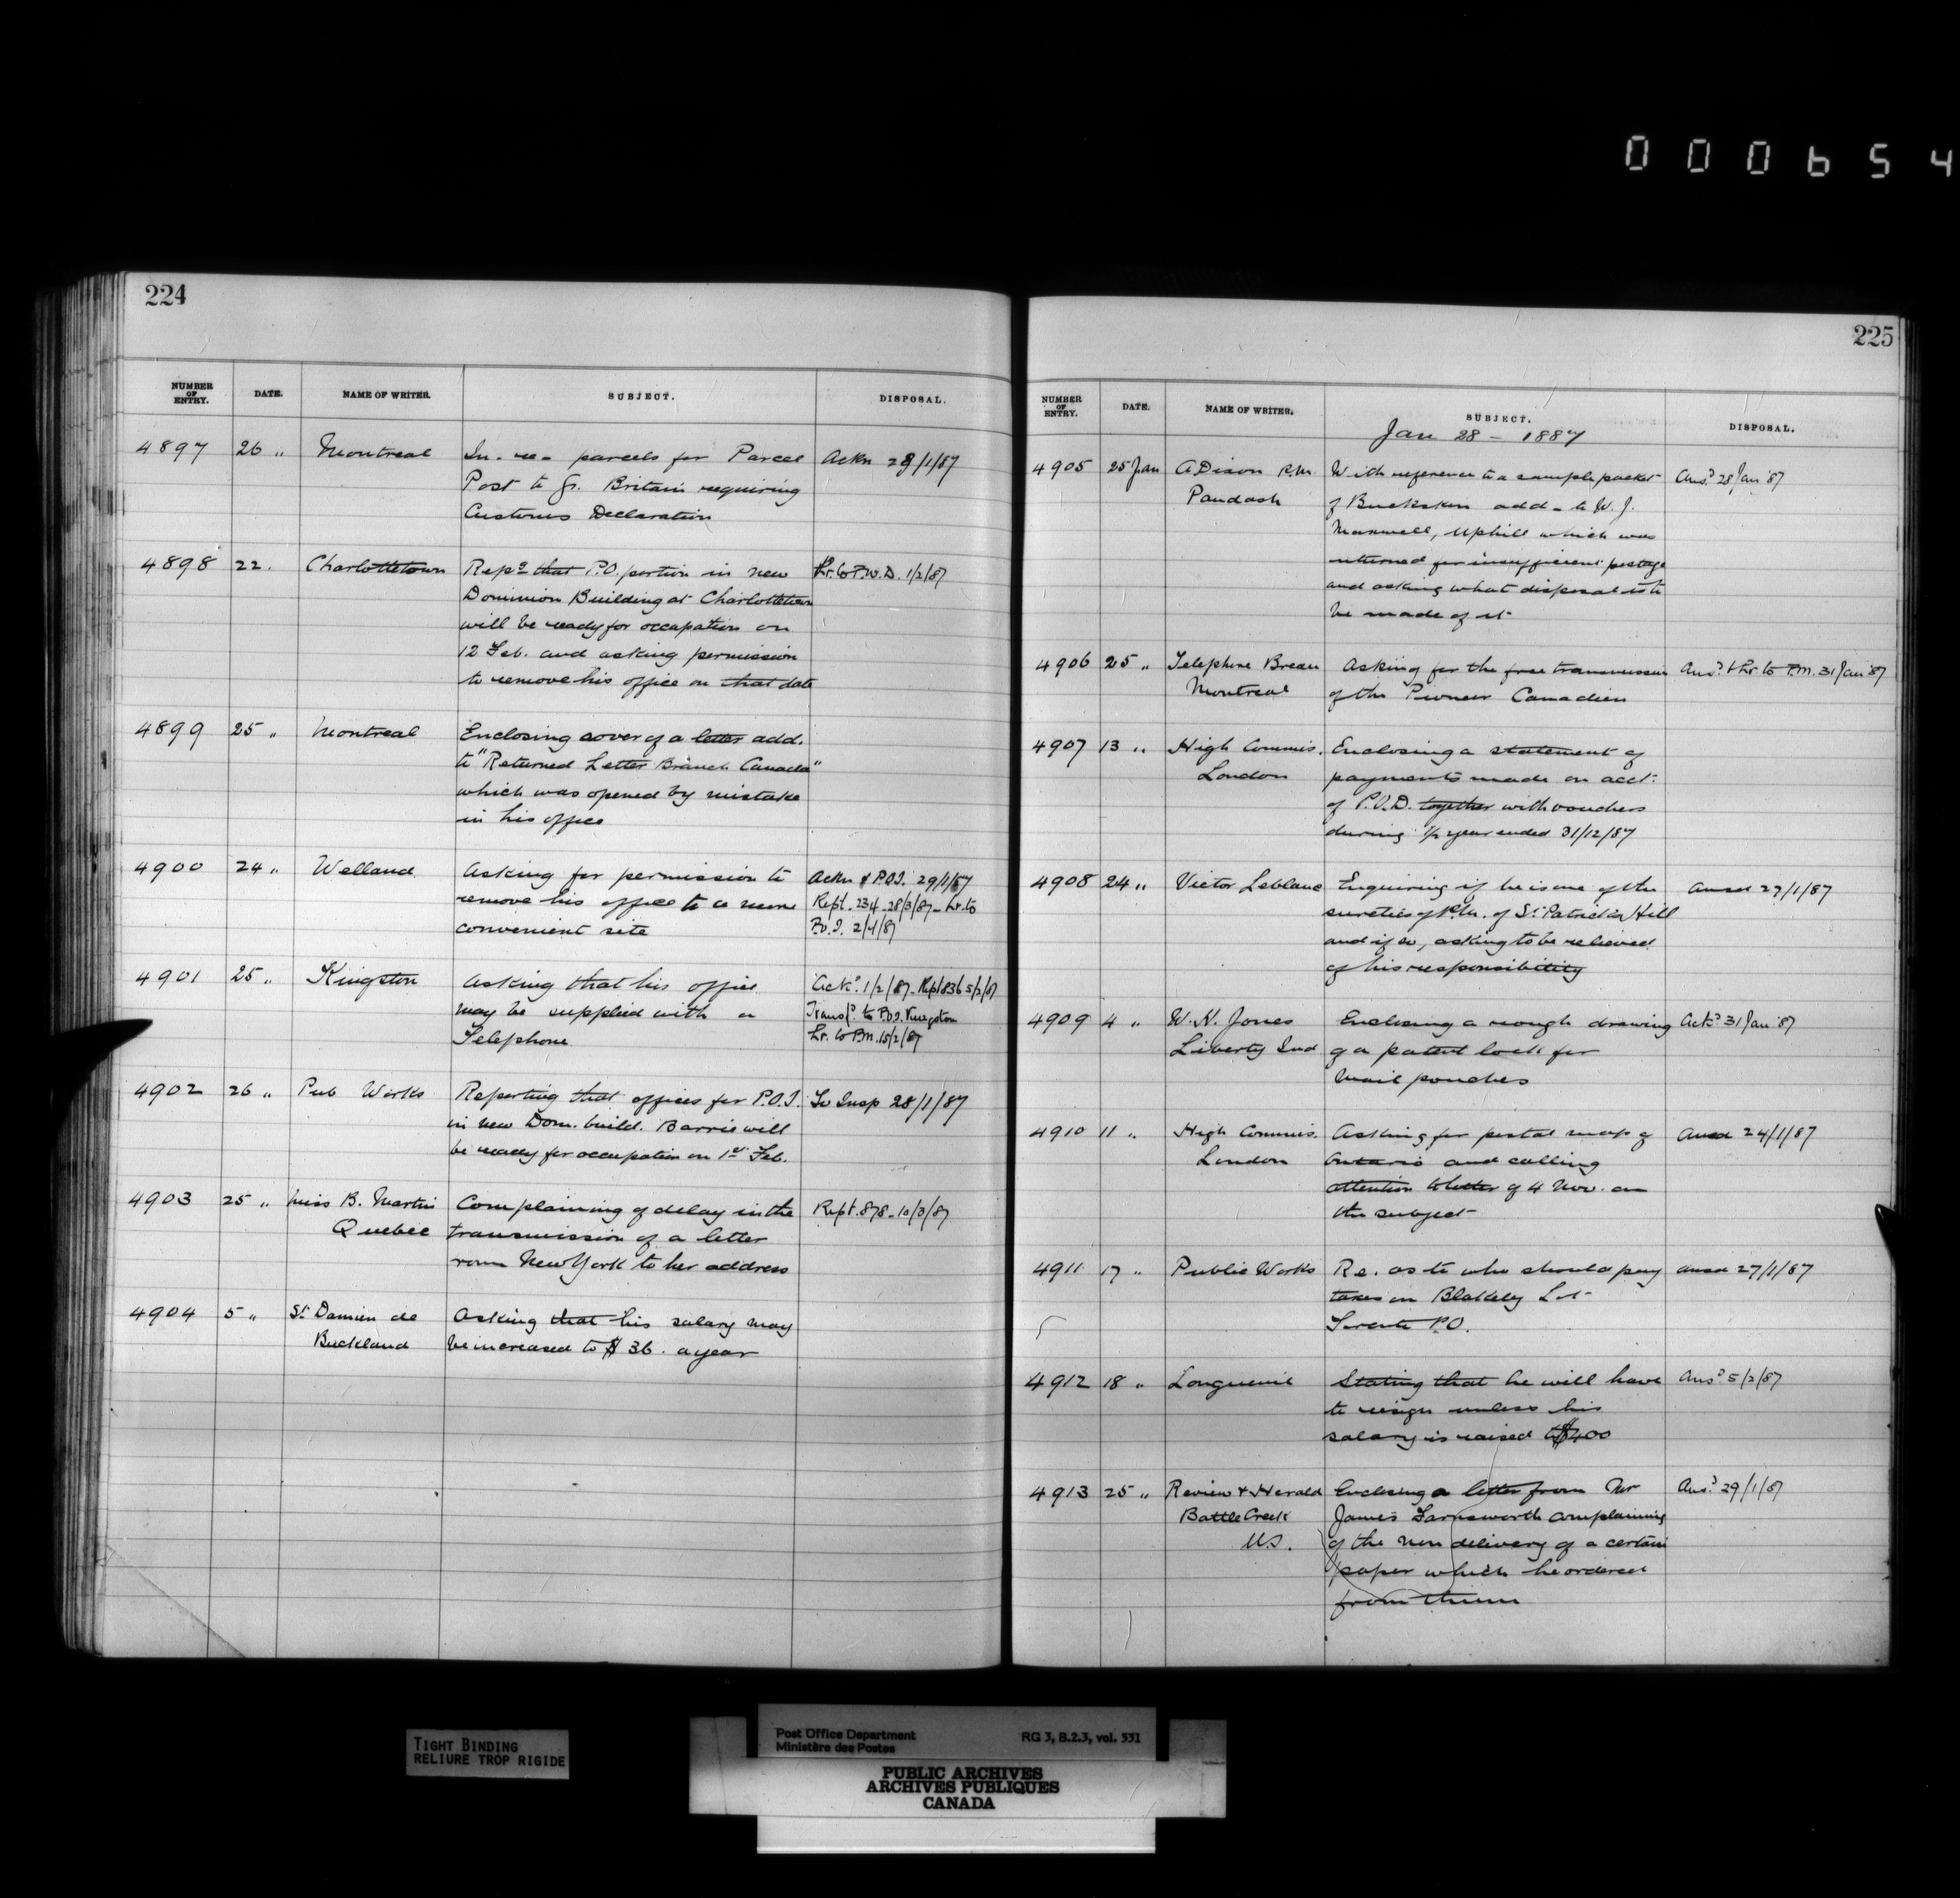 000654
224
NUMBER OF ENTRY. DATE. NAME OF WRITER. SUBJECT. DISPOSAL.
4897 26 " Montreal In. re. parcels for Parcel Ackn 28/1/87
Post to Gr. Britain requiring
Customs Declaration
4898 22. Charlottetown Repg that P.O. portion in new Lr. to P.W.D. 1/2/87
Dominion Building at Charlottetown
will be ready for occupation on
12 Feb. and asking permission
to remove his office on that date
4899 25 " Montreal Enclosing cover of a letter add.
to "Returned Letter Branch Canada"
which was opened by mistake
in his office
4900 24 " Welland Asking for permission to Ackn & P.O.I. 29/1/87
remove his office to a more Rept. 234 - 28/3/87 - Lr. to
convenient site P.O.I. 2/4/87
4901 25 " Kingston Asking that his office Ackd. 1/2/87 - Rept 836 5/2/87
may be supplied with a Transfd. to P.O.I. Kingston
Telephone Lr. to P.M. 15/2/87
4902 26 " Pub Works Reporting that offices for P.O.I. To Insp 28/1/87
in new Dom. build. Barrie will
be ready for occupation on 1st Feb.
4903 25 " Miss B. Martin Complaining of delay in the Rept. 878 - 10/3/87
Quebec transmission of a letter
from New York to her address
4904 5 " St. Damien de Asking that his salary may
Buckland be increased to $36. a year
225
NUMBER OF ENTRY. DATE. NAME OF WRITER. SUBJECT. DISPOSAL.
Jan 28 - 1887
4905 25 Jan A Dixon P.M. With reference to a sample packet Ansd. 28 Jan '87
Paudash of Buckskin add - to W. J.
Maxwell, Uphill which was
returned for insufficient postage
and asking what disposal is to
be made of it
4906 25 " Telephore Breau Asking for the free transmission Ansd. & Lr. to P.M. 31 Jan '87
Montreal of the Pioneer Canadien
4907 13 " High Commis. Enclosing a statement of
London payments made on acct.
of P.O.D. together with vouchers
during ½ year ended 31/12/87
4908 24 " Victor Leblanc Enquiring if he is one of the Ansd 27/1/87
sureties of P.M. of St. Patrick's Hill
and if so, asking to be relieved
of his responsibility
4909 4 " W. N. Jones Enclosing a rough drawing Ackd. 31 Jan '87
Liberty Ind of a patent lock for
Mail pouches
4910 11 " High Commis. Asking for postal map of Ansd 24/1/87
London Ontario and calling
attention to letter of 4 Nov. on
the subject
4911 17 " Public Works Re. as to who should pay Ansd 27/1/87
taxes on Blakeley Lot
Toronto P.O.
4912 18 " Longueuil Stating that he will have Ansd. 5/2/87
to resign unless his
salary is raised to $400
4913 25 " Review & Herald Enclosing a letter from Mr Ansd. 29/1/87
Battle Creek James Farnsworth complaining
U.S. of the non delivery of a certain
paper which he ordered
from them
TIGHT BINDING
RELIURE TROP RIGIDE
Post Office Department RG 3, B.2.3, vol. 531
Ministère des Postes
PUBLIC ARCHIVES
ARCHIVES PUBLIQUES
CANADA